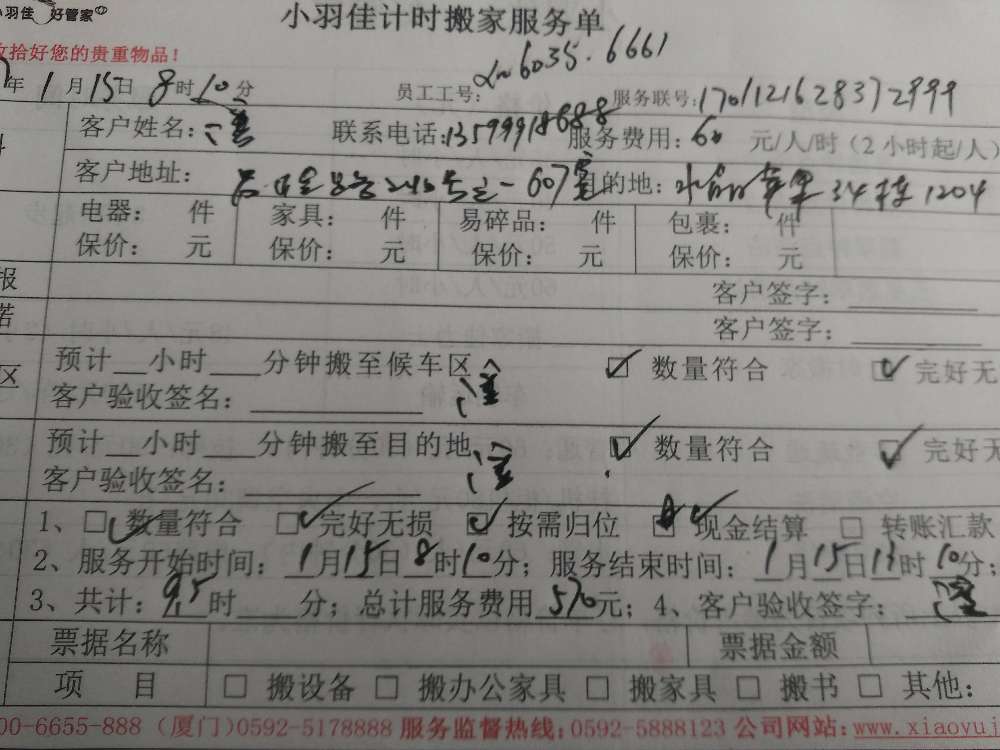 小羽佳 好管家
小羽佳计时搬家服务单
收拾好您的贵重物品！
6035.6661
年1月15日8时10分 员工工号： 服务联号：17011216283372999
客户姓名： 联系电话：13599918688 服务费用：60元/人/时（2小时起/人）
客户地址： 607 目的地：水晶苹果34栋1204
电器： 件 家具： 件 易碎品： 件 包裹： 件
保价： 元 保价： 元 保价： 元 保价： 元
报 客户签字：
诺 客户签字：
区 预计__小时___分钟搬至候车区 ☑数量符合 ☑完好无
客户验收签名：
预计__小时___分钟搬至目的地 ☑数量符合 ☑完好无
客户验收签名：
1、☑数量符合 ☑完好无损 ☑按需归位 ☑现金结算 □转账汇款
2、服务开始时间：1月15日8时10分；服务结束时间：1月15日13时10分；
3、共计：9.5时___分；总计服务费用570元；4、客户验收签字：
票据名称 票据金额
项 目 □搬设备 □搬办公家具 □搬家具 □搬书 □其他：
00-6655-888（厦门)0592-5178888 服务监督热线：0592-5888123 公司网站：www.xiaoyuj